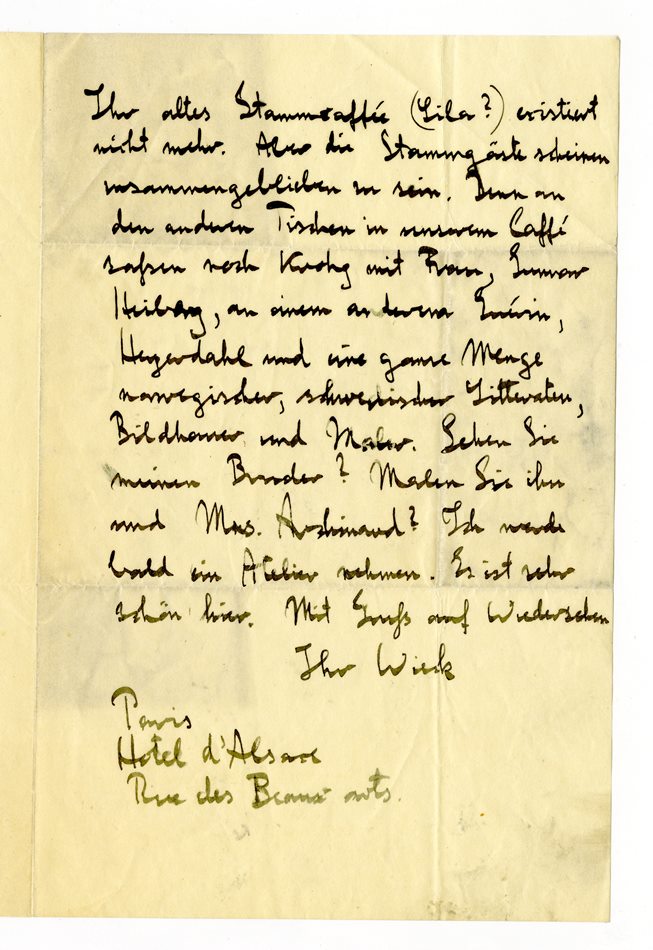 Ihr altes Stammcaffée (Lila?) existiert
nicht mehr. Aber die Stammgäste scheinen
zusammengeblieben zu sein. Denn an
den anderen Tischen in unserem Caffé
safsen noch Krohg mit Frau, Gunnar
Heiberg, an einem anderem
Heyerdahl und eine ganze Menge
norwegischer, schwedischer Litteraten,
Bildhauer und Maler. Sehen Sie
meinen Bruder? Malen Sie ihn
und Mrs. Archinard? Ich werde
bald ein Atelier nehmen. Es ist sehr
schön hier. Mit Grufs auf Wiedersehen
Ihr Wieck
Paris
Hotel d'Alsace
Rue des Beaux arts.